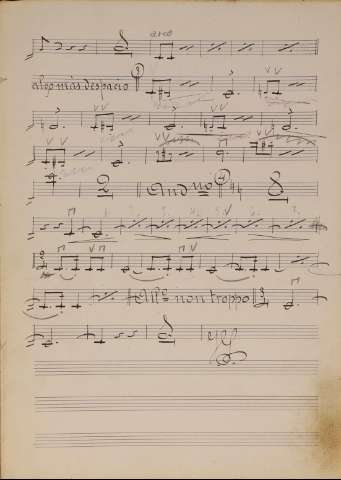 arco
algo más despacio
2 And.no 8
All.o non troppo